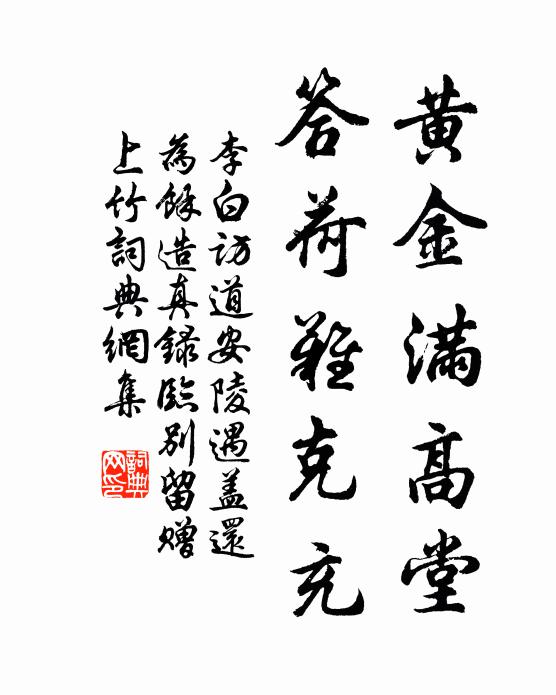 黄金滿高堂
答荷難克充
李白訪道安陵遇盖還
為餘造真籙臨別留贈
上竹詞典網集
詞典网印